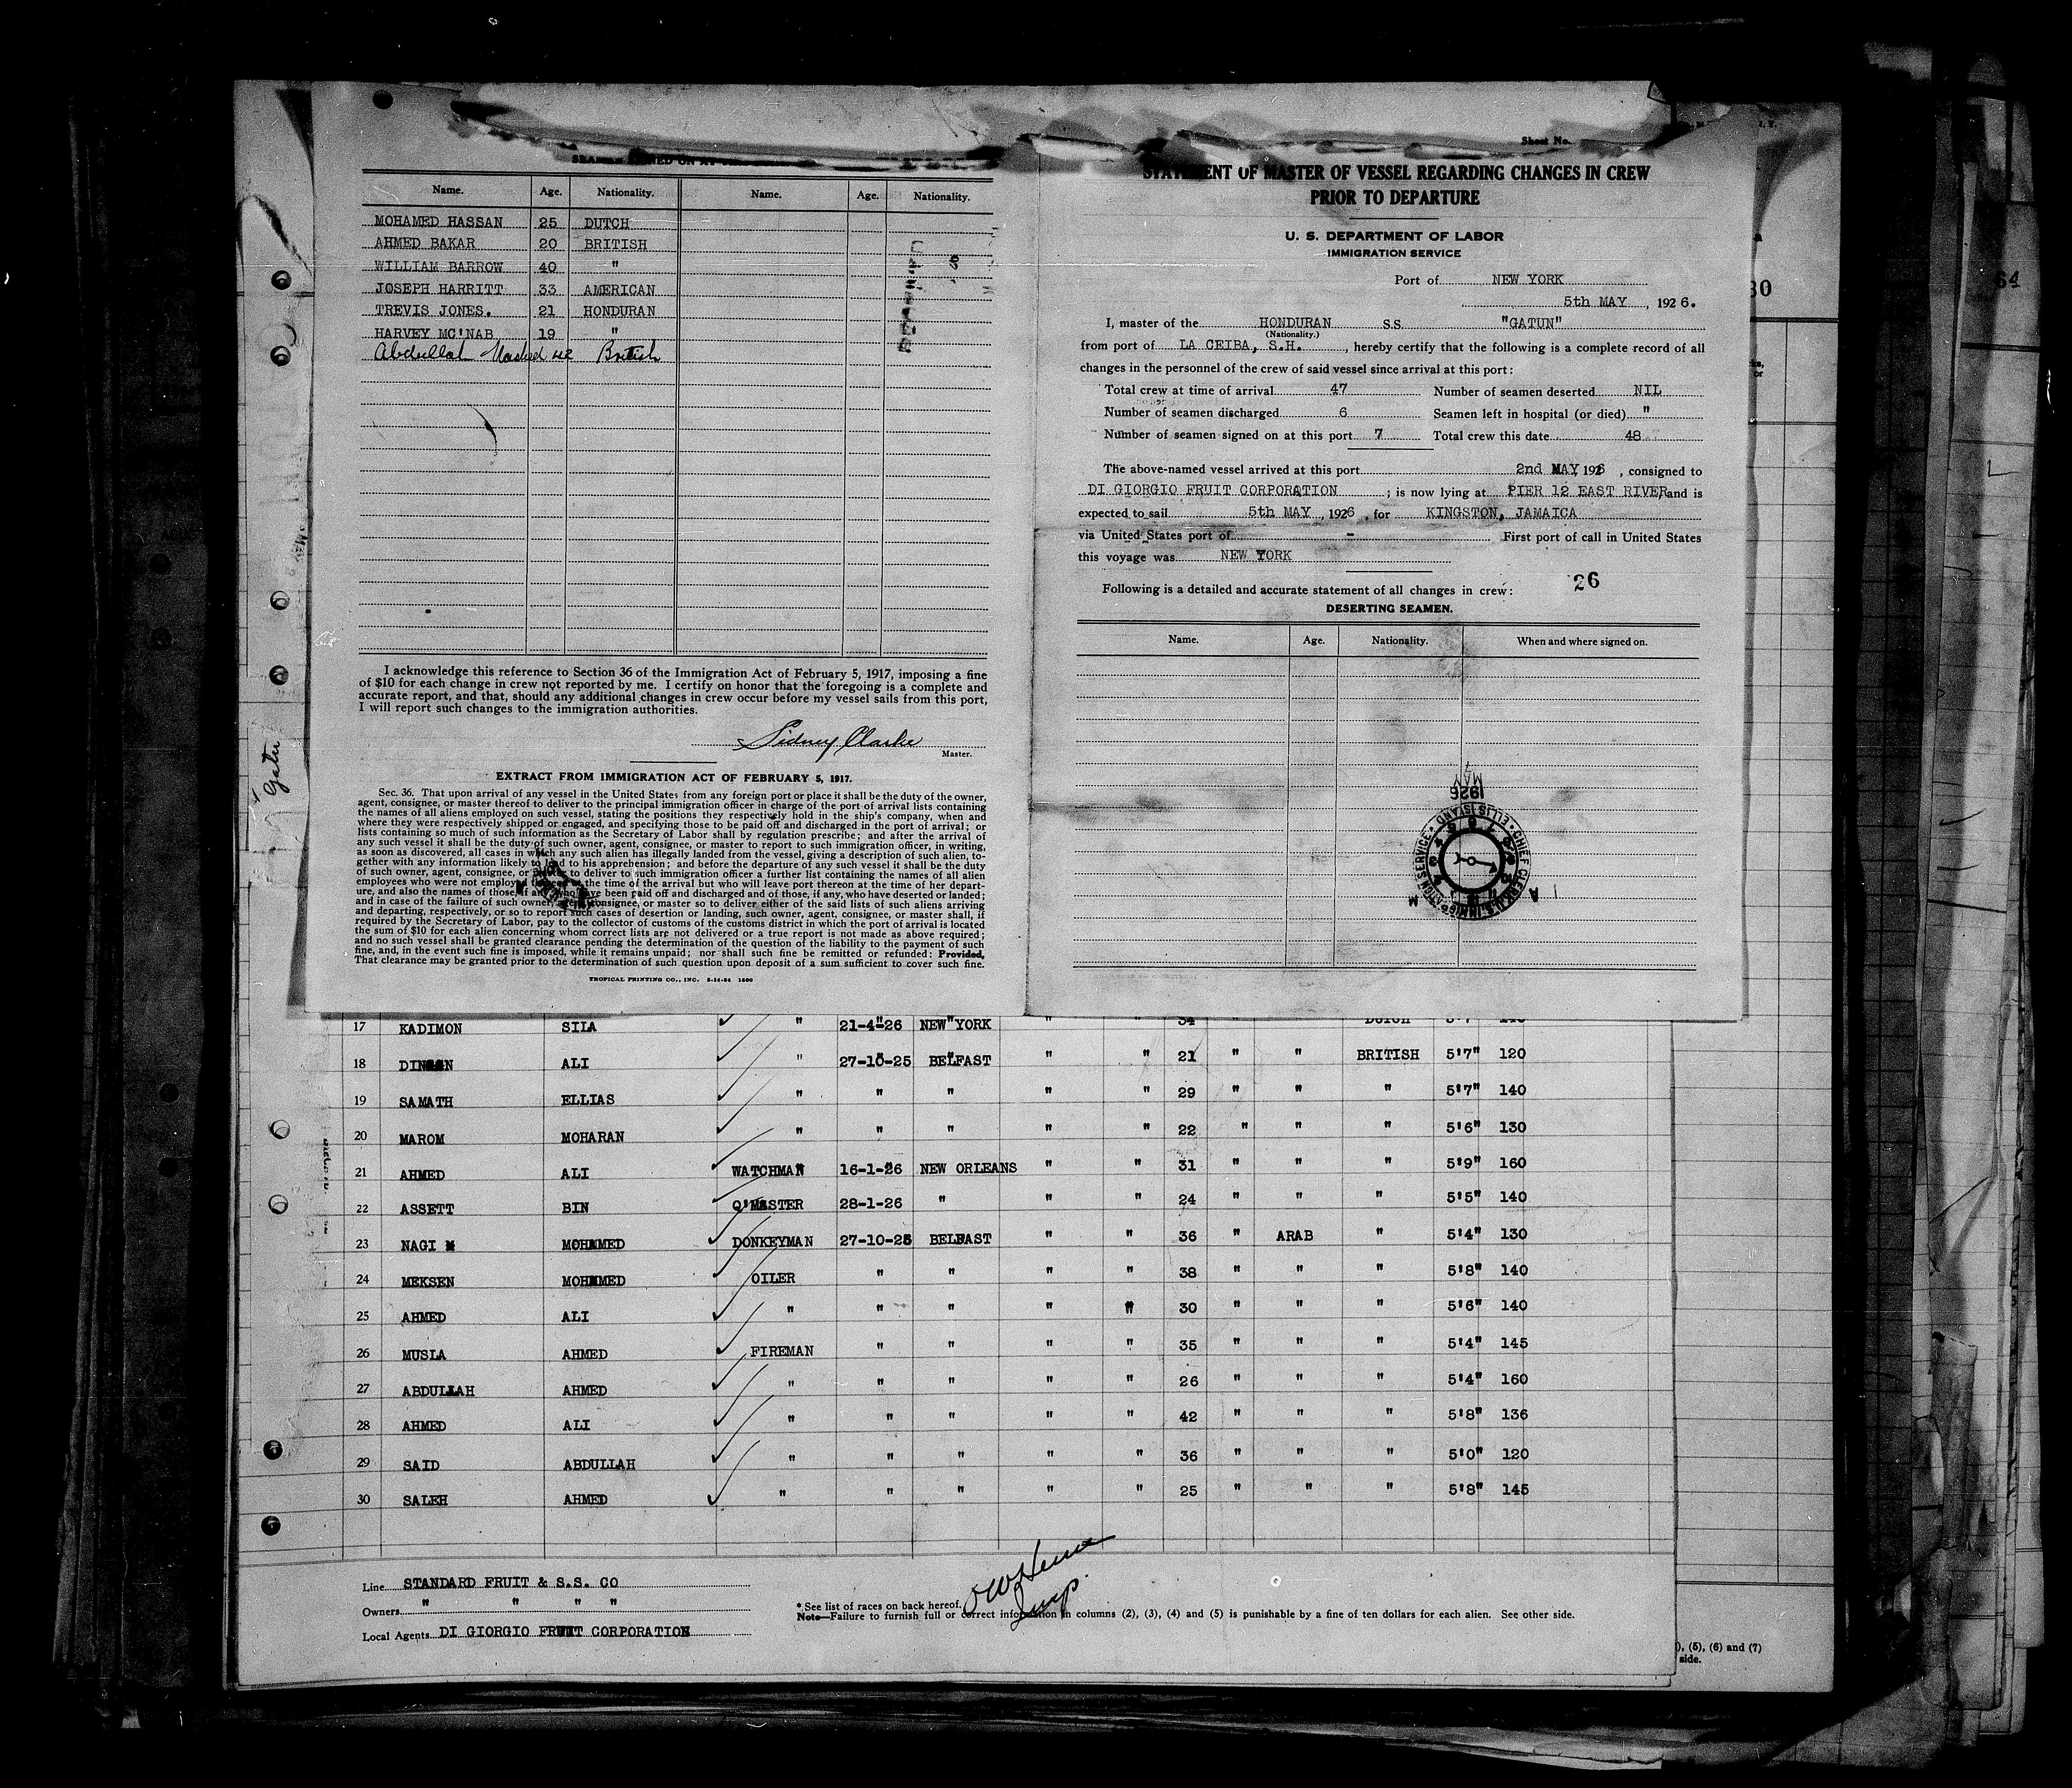 Name. Age. Nationality. Name. Age. Nationality.
MOHAMED HASSAN 25 DUTCH
AHMED BAKAR 20 BRITISH
WILLIAM BARROW 40 "
JOSEPH HARRITT 33 AMERICAN
TREVIS JONES. 21 HONDURAN
HARVEY MC'NAB 19 "
Abdullah British
I acknowledge this reference to Section 36 of the Immigration Act of February 5, 1917, imposing a fine
of $10 for each change in crew not reported by me. I certify on honor that the foregoing is a complete and
accurate report, and that, should any additional changes in crew occur before my vessel sails from this port,
I will report such changes to the immigration authorities.
Sidney Clarke
Master.
EXTRACT FROM IMMIGRATION ACT OF FEBRUARY 5, 1917.
Sec. 36. That upon arrival of any vessel in the United States from any foreign port or place it shall be the duty of the owner,
agent, consignee, or master thereof to deliver to the principal immigration officer in charge of the port of arrival lists containing
the names of all aliens employed on such vessel, stating the positions they respectively hold in the ship's company, when and
where they were respectively shipped or engaged, and specifying those to be paid off and discharged in the port of arrival; or
lists containing so much of such information as the Secretary of Labor shall by regulation prescribe; and after the arrival of
any such vessel it shall be the duty of such owner, agent, consignee, or master to report to such immigration officer, in writing,
as soon as discovered, all cases in which any such alien has illegally landed from the vessel, giving a description of such alien, to-
gether with any information likely to lead to his apprehension; and before the departure of any such vessel it shall be the duty
of such owner, agent, consignee, or to deliver to such immigration officer a further list containing the names of all alien
employees who were not employed the time of the arrival but who will leave port thereon at the time of her depart-
ure, and also the names of those, if any, who have been paid off and discharged and of those, if any, who have deserted or landed;
and in case of the failure of such owner, agent, consignee, or master so to deliver either of the said lists of such aliens arriving
and departing, respectively, or so to report such cases of desertion or landing, such owner, agent, consignee, or master shall, if
required by the Secretary of Labor, pay to the collector of customs of the customs district in which the port of arrival is located
the sum of $10 for each alien concerning whom correct lists are not delivered or a true report is not made as above required;
and no such vessel shall be granted clearance pending the determination of the question of the liability to the payment of such
fine, and, in the event such fine is imposed, while it remains unpaid; nor shall such fine be remitted or refunded: Provided,
That clearance may be granted prior to the determination of such question upon deposit of a sum sufficient to cover such fine.
TROPICAL PRINTING CO., INC. 5-14-24 1500
Sheet No.
STATEMENT OF MASTER OF VESSEL REGARDING CHANGES IN CREW
PRIOR TO DEPARTURE
U. S. DEPARTMENT OF LABOR
IMMIGRATION SERVICE
Port of NEW YORK
5th MAY , 1926.
I, master of the HONDURAN SS "GATUN"
(Nationality.)
from port of LA CEIBA, S.H. , hereby certify that the following is a complete record of all
changes in the personnel of the crew of said vessel since arrival at this port:
Total crew at time of arrival 47 Number of seamen deserted NIL
Number of seamen discharged 6 Seamen left in hospital (or died) "
Number of seamen signed on at this port 7 Total crew this date 48
The above-named vessel arrived at this port 2nd MAY 1926 , consigned to
DI GIORGIO FRUIT CORPORATION ; is now lying at PIER 12 EAST RIVER and is
expected to sail 5th MAY , 1926 , for KINGSTON, JAMAICA
via United States port of - First port of call in United States
this voyage was NEW YORK
Following is a detailed and accurate statement of all changes in crew: 26
DESERTING SEAMEN.
Name. Age. Nationality. When and where signed on.
MAY
1926
CHIEF CLERK, U.S. IMMIGRATION SERVICE. ELLIS ISLAND
Gatun
30
64
17 KADIMON SILA " 21-4-26 NEW YORK " " 34 DUTCH
18 ALI " 27-10-25 BELFAST " " 21 " " BRITISH 5'7" 120
19 SAMATH ELLIAS " " " " " 29 " " " 5'7" 140
20 MAROM MOHARAN " " " " " 22 " " " 5'6" 130
21 AHMED ALI WATCHMAN 16-1-26 NEW ORLEANS " " 31 " " " 5'9" 160
22 ASSETT BIN Q'MASTER 28-1-26 " " " 24 " " " 5'5" 140
23 NAGI MOHAMED DONKEYMAN 27-10-25 BELFAST " " 36 " ARAB " 5'4" 130
24 MEKSEN MOHAMED OILER " " " " 38 " " " 5'8" 140
25 AHMED ALI " " " " " 30 " " " 5'6" 140
26 MUSLA AHMED FIREMAN " " " " 35 " " " 5'4" 145
27 ABDULLAH AHMED " " " " " 26 " " " 5'4" 160
28 AHMED ALI " " " " " 42 " " " 5'8" 136
29 SAID ABDULLAH " " " " " 36 " " " 5'0" 120
30 SALEH AHMED " " " " " 25 " " " 5'8" 145
Line STANDARD FRUIT & S.S. CO
Owners " " " "
Local Agents DI GIORGIO FRUIT CORPORATION
* See list of races on back hereof.
Note—Failure to furnish full or correct information in columns (2), (3), (4) and (5) is punishable by a fine of ten dollars for each alien. See other side.
, (5), (6) and (7)
side.